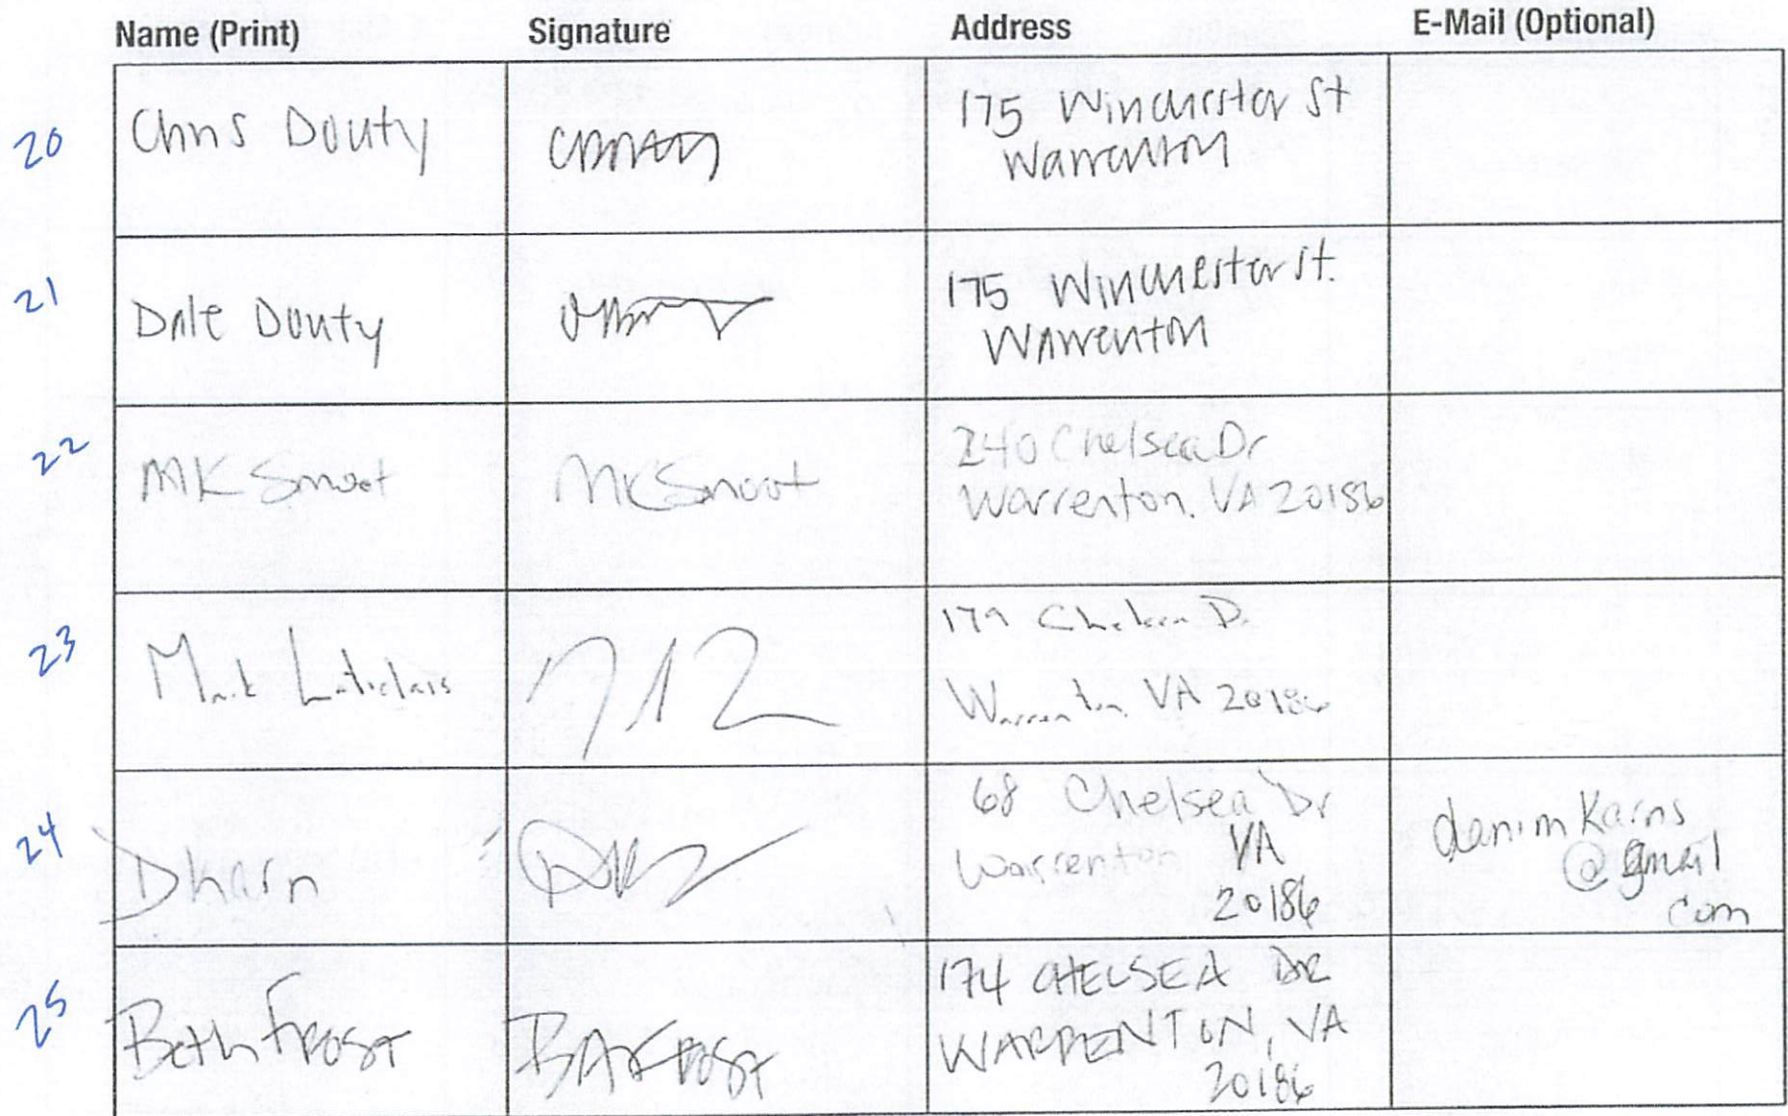 Name (Print) Signature Address E-Mail (Optional)
20 Chris Douty 175 Winchester St
Warrenton
21 Dale Douty 175 Winchester St.
Warrenton
22 MK Smoot MKSmoot 240 Chelsea Dr
Warrenton, VA 20186
23 Mark Chelsea Dr
Warrenton VA 20186
24 DKarn 68 Chelsea Dr danimkarns
Warrenton VA @gmail
20186 com
25 Beth Frost BAFrost 174 CHELSEA DR
WARRENTON, VA
20186